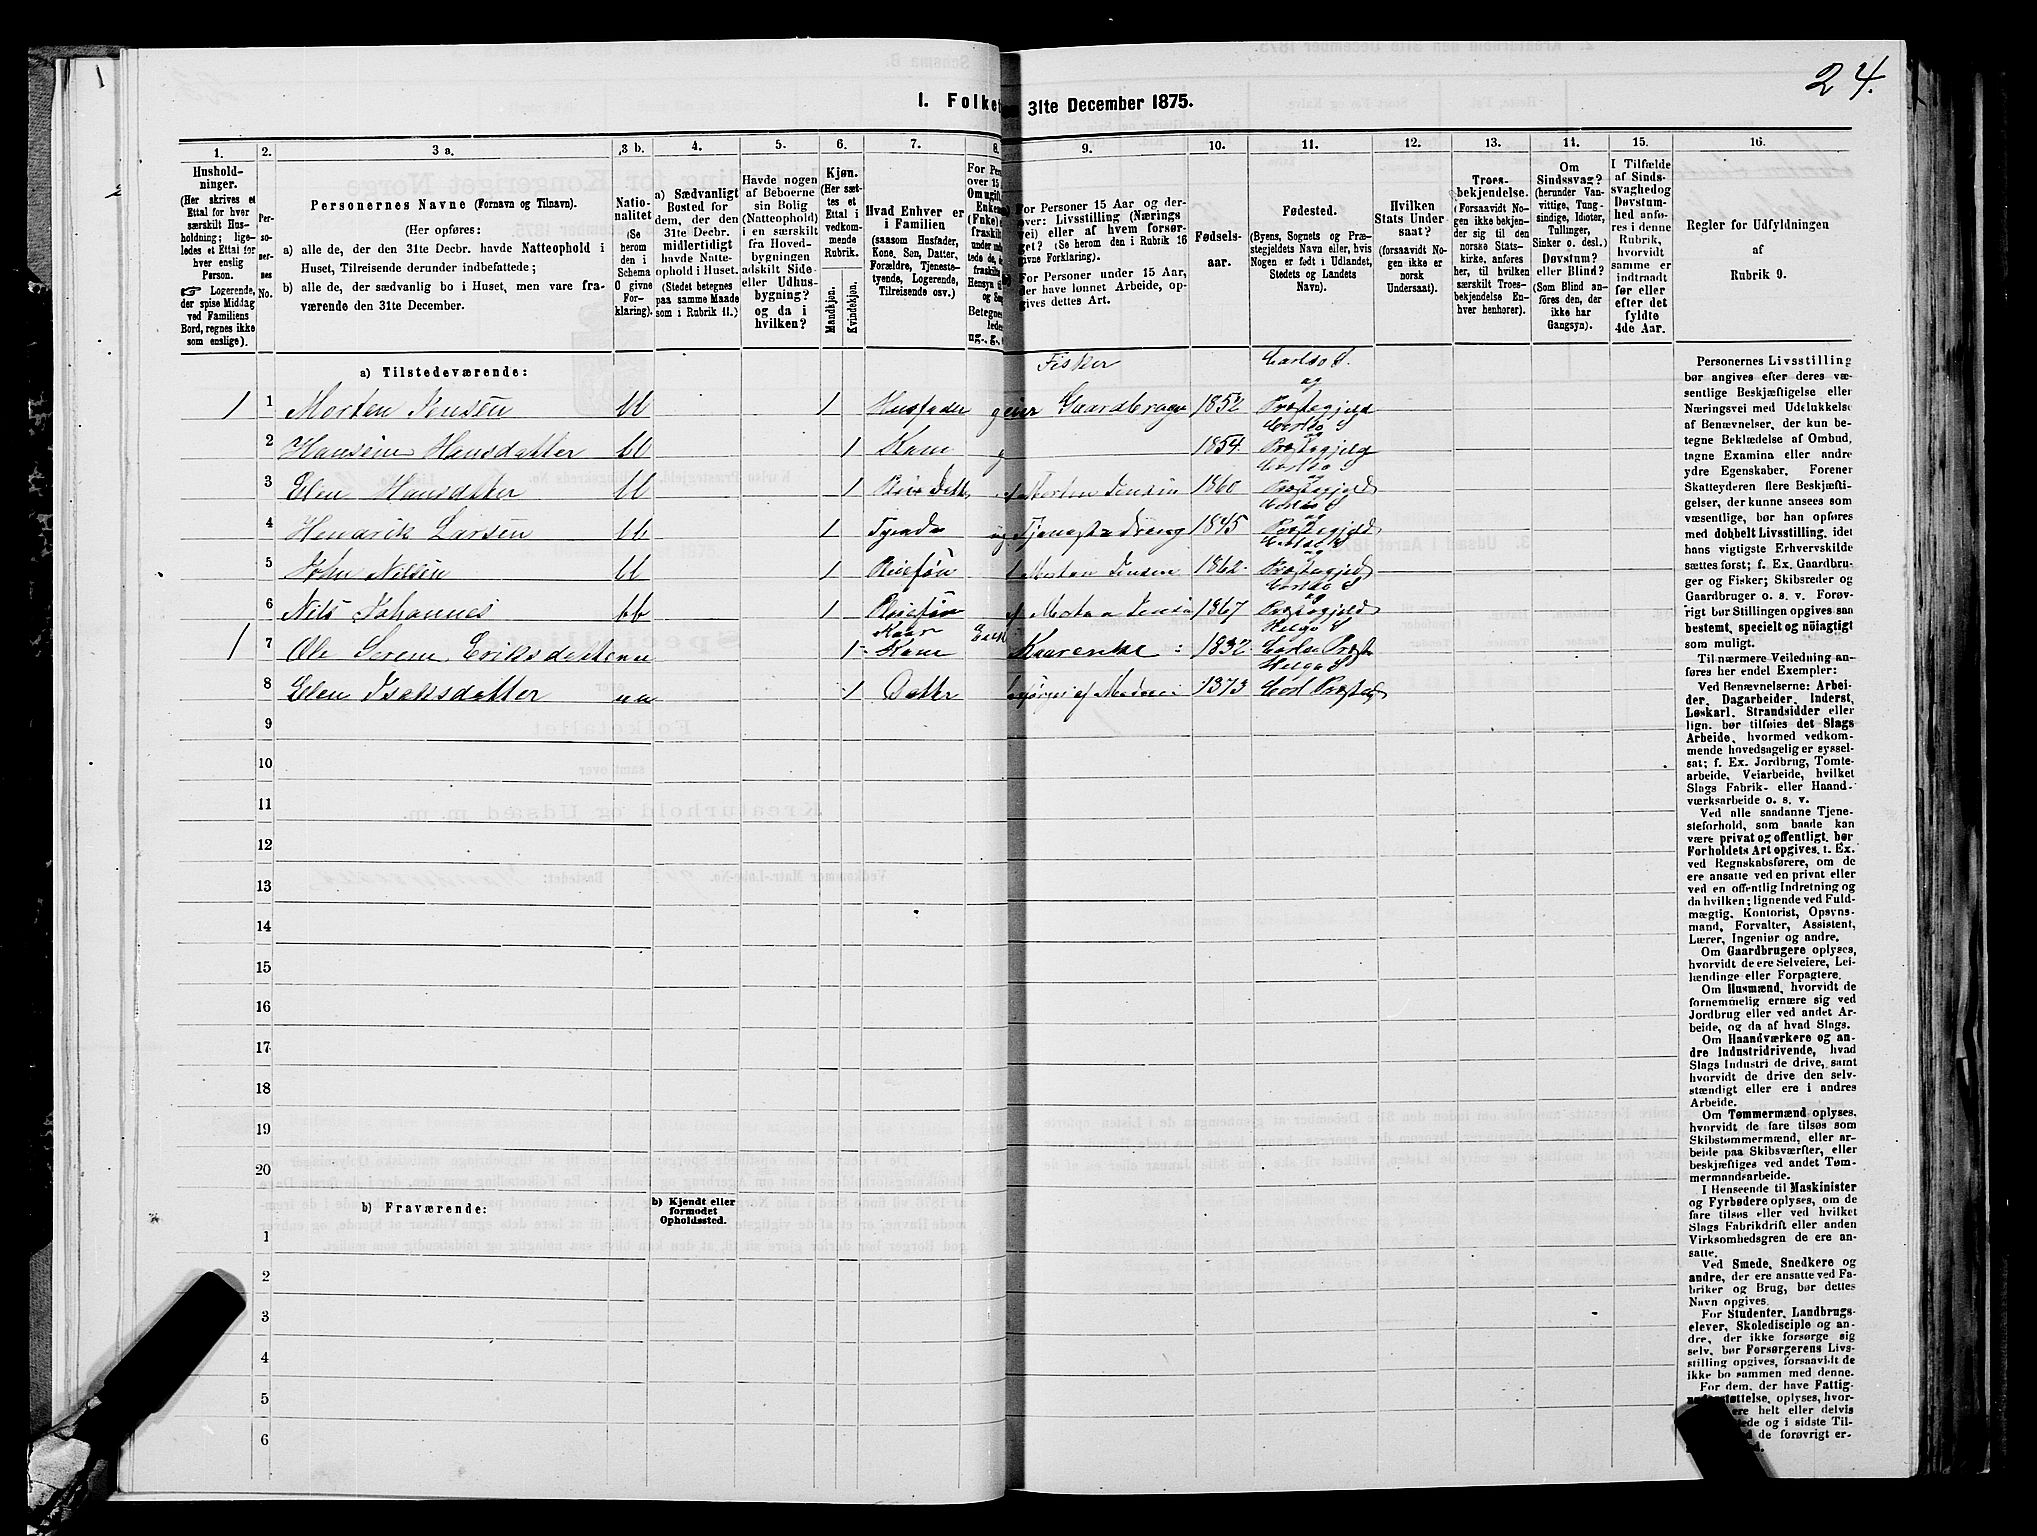 24.
I. Folket 31te December 1875.
1. 2. 3 a. 3 b. 4. 5. 6. 7. 8. 9. 10. 11. 12. 13. 14. 15. 16.
Hushold-
ninger.
(Her skrives et
Ettal for hver
særskilt Hus-
holdning; lige-
ledes et Ettal
for hver enslig
Person.
☞ Logerende,
der spise Middag
ved Familiens
Bord, regnes ikke
som enslige).
Per-
so-
ner-
nes
No.
Personernes Navne (Fornavn og Tilnavn).
(Her opføres:
a) alle de, der den 31te Decbr. havde Natteophold i
Huset, Tilreisende derunder indbefattede;
b) alle de, der sædvanlig bo i Huset, men vare fra-
værende den 31te December.
Natio-
nalitet
(Se
herom
den i
Schema
O givne
For-
klaring).
a) Sædvanligt
Bosted for
dem, der den
31te Decbr.
midlertidigt
havde Natte-
ophold i Huset.
(Stedet betegnes
paa samme Maade
som i Rubrik 11.)
Havde nogen
af Beboerne
sin Bolig
(Natteophold)
i en særskilt
fra Hoved-
bygningen
adskilt Side-
eller Udhus-
bygning?
og da i
hvilken?
Kjøn.
(Her sæt-
tes et
Ettal i
vedkom-
mende
Rubrik.
Mandkjøn.
Kvindekjøn.
Hvad Enhver er
i Familien
(saasom Husfader,
Kone, Søn, Datter,
Forældre, Tjeneste-
tyende, Logerende,
Tilreisende osv.)
For Pers
over 15
Om ugift,
Enkem
(Fnke)
fraskilt
Hensyn
og
Betegnes
ledes
ug., g.,
For Personer 15 Aar og der-
over: Livsstilling (Nærings
vei) eller af hvem forsør-
get? (Se herom den i Rubrik 16
givne Forklaring).
For Personer under 15 Aar,
der have lønnet Arbeide, op-
gives dettes Art.
Fødsels-
aar.
Fødested.
(Byens, Sognets og Præ-
stegjeldets Navn eller, hvis
Nogen er født i Udlandet,
Stedets og Landets
Navn).
Hvilken
Stats Under-
saat?
(forsaavidt No-
gen ikke er
norsk
Undersaat).
Troes-
bekjendelse.
(Forsaavidt No-
gen ikke bekjen-
der sig til den
norske Stats-
kirke, anføres
her, til hvilken
særskilt Troes-
bekjendelse En-
hver henhører).
Om
Sindssvag?
(herunder Van-
vittige, Tung-
sindige, Idioter,
Tullinger,
Sinker o. desl.)
Døvstum?
eller Blind?
(Som Blind an-
føres den, der
ikke har
Gangsyn).
I Tilfælde
af Sinds-
svaghed og
Døvstum-
hed anfø-
res i denne
Rubrik,
hvorvidt
samme er
indtraadt
før eller
efter det
fyldte
4de Aar.
Regler for Udfyldningen
af
Rubrik 9.
a) Tilstedeværende:
1 1 Morten Jensen bb 1 Husfader g eier Fisker Gaardbruger 1852 Carlsö S. og Præstegjeld
2 Hansine Hansdatter bb 1 Kone g 1854. Carlsö S og Præstegjeld
3 Elen Hansdatter bb 1 Morten Jensen 1860 Carlsö S og Præstegjeld
4 Henarik Larsen bb 1 Tyende ug 1845 Carlsö S og Præstegjeld
5 John Nilsen bb 1 Pleiesøn Morten Jensen 1862. Carlsö S og Præstegjeld
6 Nils Johannes bb 1 Pleiesøn af Morten Jensen 1867 Carlsö S og Præstegjeld
1 7 Ole Serene Eriksdatter nn 1 Kaar Kone Enke Kaarenke 1832 Helgö S Carlsö Præst
8 Elen Isaksdatter nn 1 Datter af Moder 1873 Helgö S Carl Præsteg
9
10
11
12
13
14
15
16
17
18
19
20
b) Fraværende:
b) Kjendt eller
formodet
Opholdssted.
1
2
3
4
5
6
Personernes Livsstilling
bør angives efter deres væ-
sentlige Beskjæftigelse eller
Næringsvei med Udelukkelse
af Benævnelser, der kun be-
tegne Beklædelse af Ombud,
tagne Examina eller andre
ydre Egenskaber. Forener
Skatteyderen flere Beskjæfti-
gelser, der kunne ansees som
væsentlige, bør han opføres
med dobbelt Livsstilling, idet
hans vigtigste Erhvervskilde
sættes først; f. Ex. Gaardbru-
ger og Fisker; Skibsreder og
Gaardbruger o. s. v. Forøv-
rigt bør Stillingen opgives saa
bestemt, specielt og nöiagtigt
som muligt.
Til nærmere Veiledning an-
føres her endel Exempler:
Ved Benævnelserne: Arbei-
der, Dagarbeider, Inderst,
Løskarl, Strandsidder eller
lign. bør tilføies det Slags
Arbeide, hvormed vedkom-
mende hovedsagelig er syssel-
sat; f. Ex. Jordbrug, Tomte-
arbeide, Veiarbeide, hvilket
Slags Fabrik- eller Haand-
værksarbeide o. s. v.
Ved alle saadanne Tjene-
steforhold, som baade kan
være privat og offentligt, bør
Forholdets Art opgives, f. Ex.
ved Regnskabsførere, om de
ere ansatte ved en privat eller
ved en offentlig Indretning og
da hvilken; lignende ved Fuld-
mægtig, Kontorist, Opsyns-
mand, Forvalter, Assistent,
Lærer, Ingeniør og andre.
Om Gaardbrugere oplyses,
hvorvidt de ere Selveiere, Lei-
lændinge eller Forpagtere.
Om Husmænd, hvorvidt de
fornemmelig ernære sig ved
Jordbrug eller ved andet Ar-
beide, og da af hvad Slags.
Om Haandværkere og an-
dre Industridrivende, hvad
Slags Industri de drive, samt
hvorvidt de drive den selv-
stændigt eller ere i andres
Arbeide.
Om Tømmermænd oplyses,
hvorvidt de fare tilsøs som
Skibstømmermænd, eller ar-
beide paa Skibsværfter, eller
beskjæftiges ved andet Tøm-
mermandsarbeide.
I Henseende til Maskinister
og Fyrbødere oplyses, om de
fare tilsøs eller ved hvilket
Slags Fabrikdrift eller anden
Virksomhedsgren de ere an-
satte.
Ved Smede, Snedkere og
andre, der ere ansatte ved Fa-
briker og Brug, bør dettes
Navn opgives.
For Studenter, Landbrugs-
elever, Skoledisciple og an-
dre, der ikke forsørge sig
selv, bør Forsørgerens Livs-
stilling opgives, forsaavidt de
ikke bo sammen med denne.
For dem, der have Fattig-
oplyses, hvor-
helt eller delvis
og i sidste Til-
de forøvrigt er-